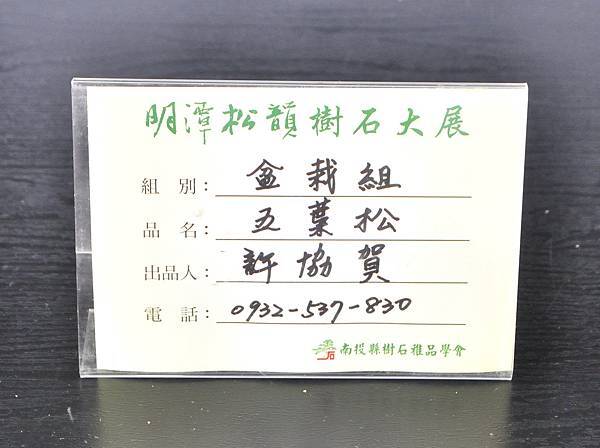 明潭松韻樹石大展
組別：盆栽組
品名：五葉松
出品人：許協賀
電話：0932-537-830
南投縣樹石雅品學會